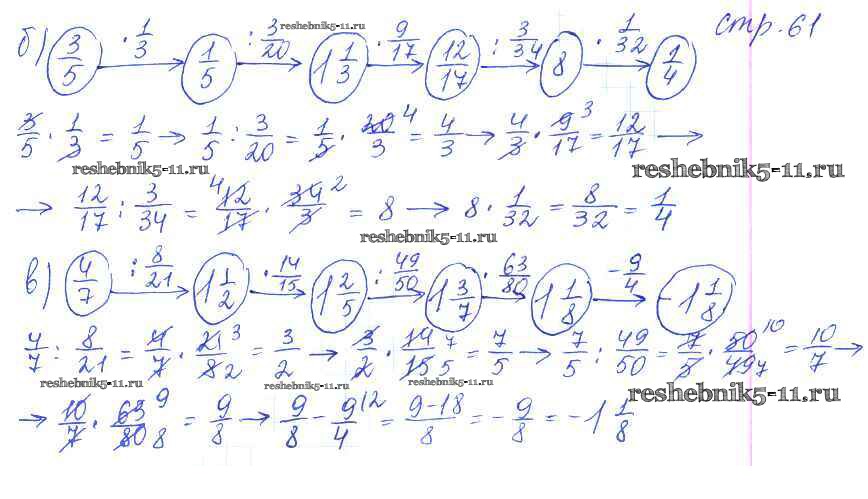 стр. 61
б) 3/5 · 1/3 → 1/5 : 3/20 → 1 1/3 · 9/17 → 12/17 : 3/34 → 8 · 1/32 → 1/4
reshebnik5-11.ru
3/5 · 1/3 = 1/5 → 1/5 : 3/20 = 1/5 · 20/3 4 = 4/3 → 4/3 · 9/17 3 = 12/17 →
reshebnik5-11.ru reshebnik5-11.ru
→ 12/17 : 3/34 = 4 12/17 · 34/3 2 = 8 → 8 · 1/32 = 8/32 = 1/4
reshebnik5-11.ru
в) 4/7 : 8/21 → 1 1/2 · 14/15 → 1 2/5 : 49/50 → 1 3/7 · 63/80 → 1 1/8 - 9/4 → -1 1/8
4/7 : 8/21 = 4/7 · 21/8 3 2 = 3/2 → 3/2 · 14/15 7 5 = 7/5 → 7/5 : 49/50 = 7/5 · 50/49 10 7 = 10/7 →
reshebnik5-11.ru reshebnik5-11.ru reshebnik5-11.ru reshebnik5-11.ru
→ 10/7 · 63/80 9 8 = 9/8 → 9/8 - 9/4 12 = 9-18/8 = - 9/8 = -1 1/8